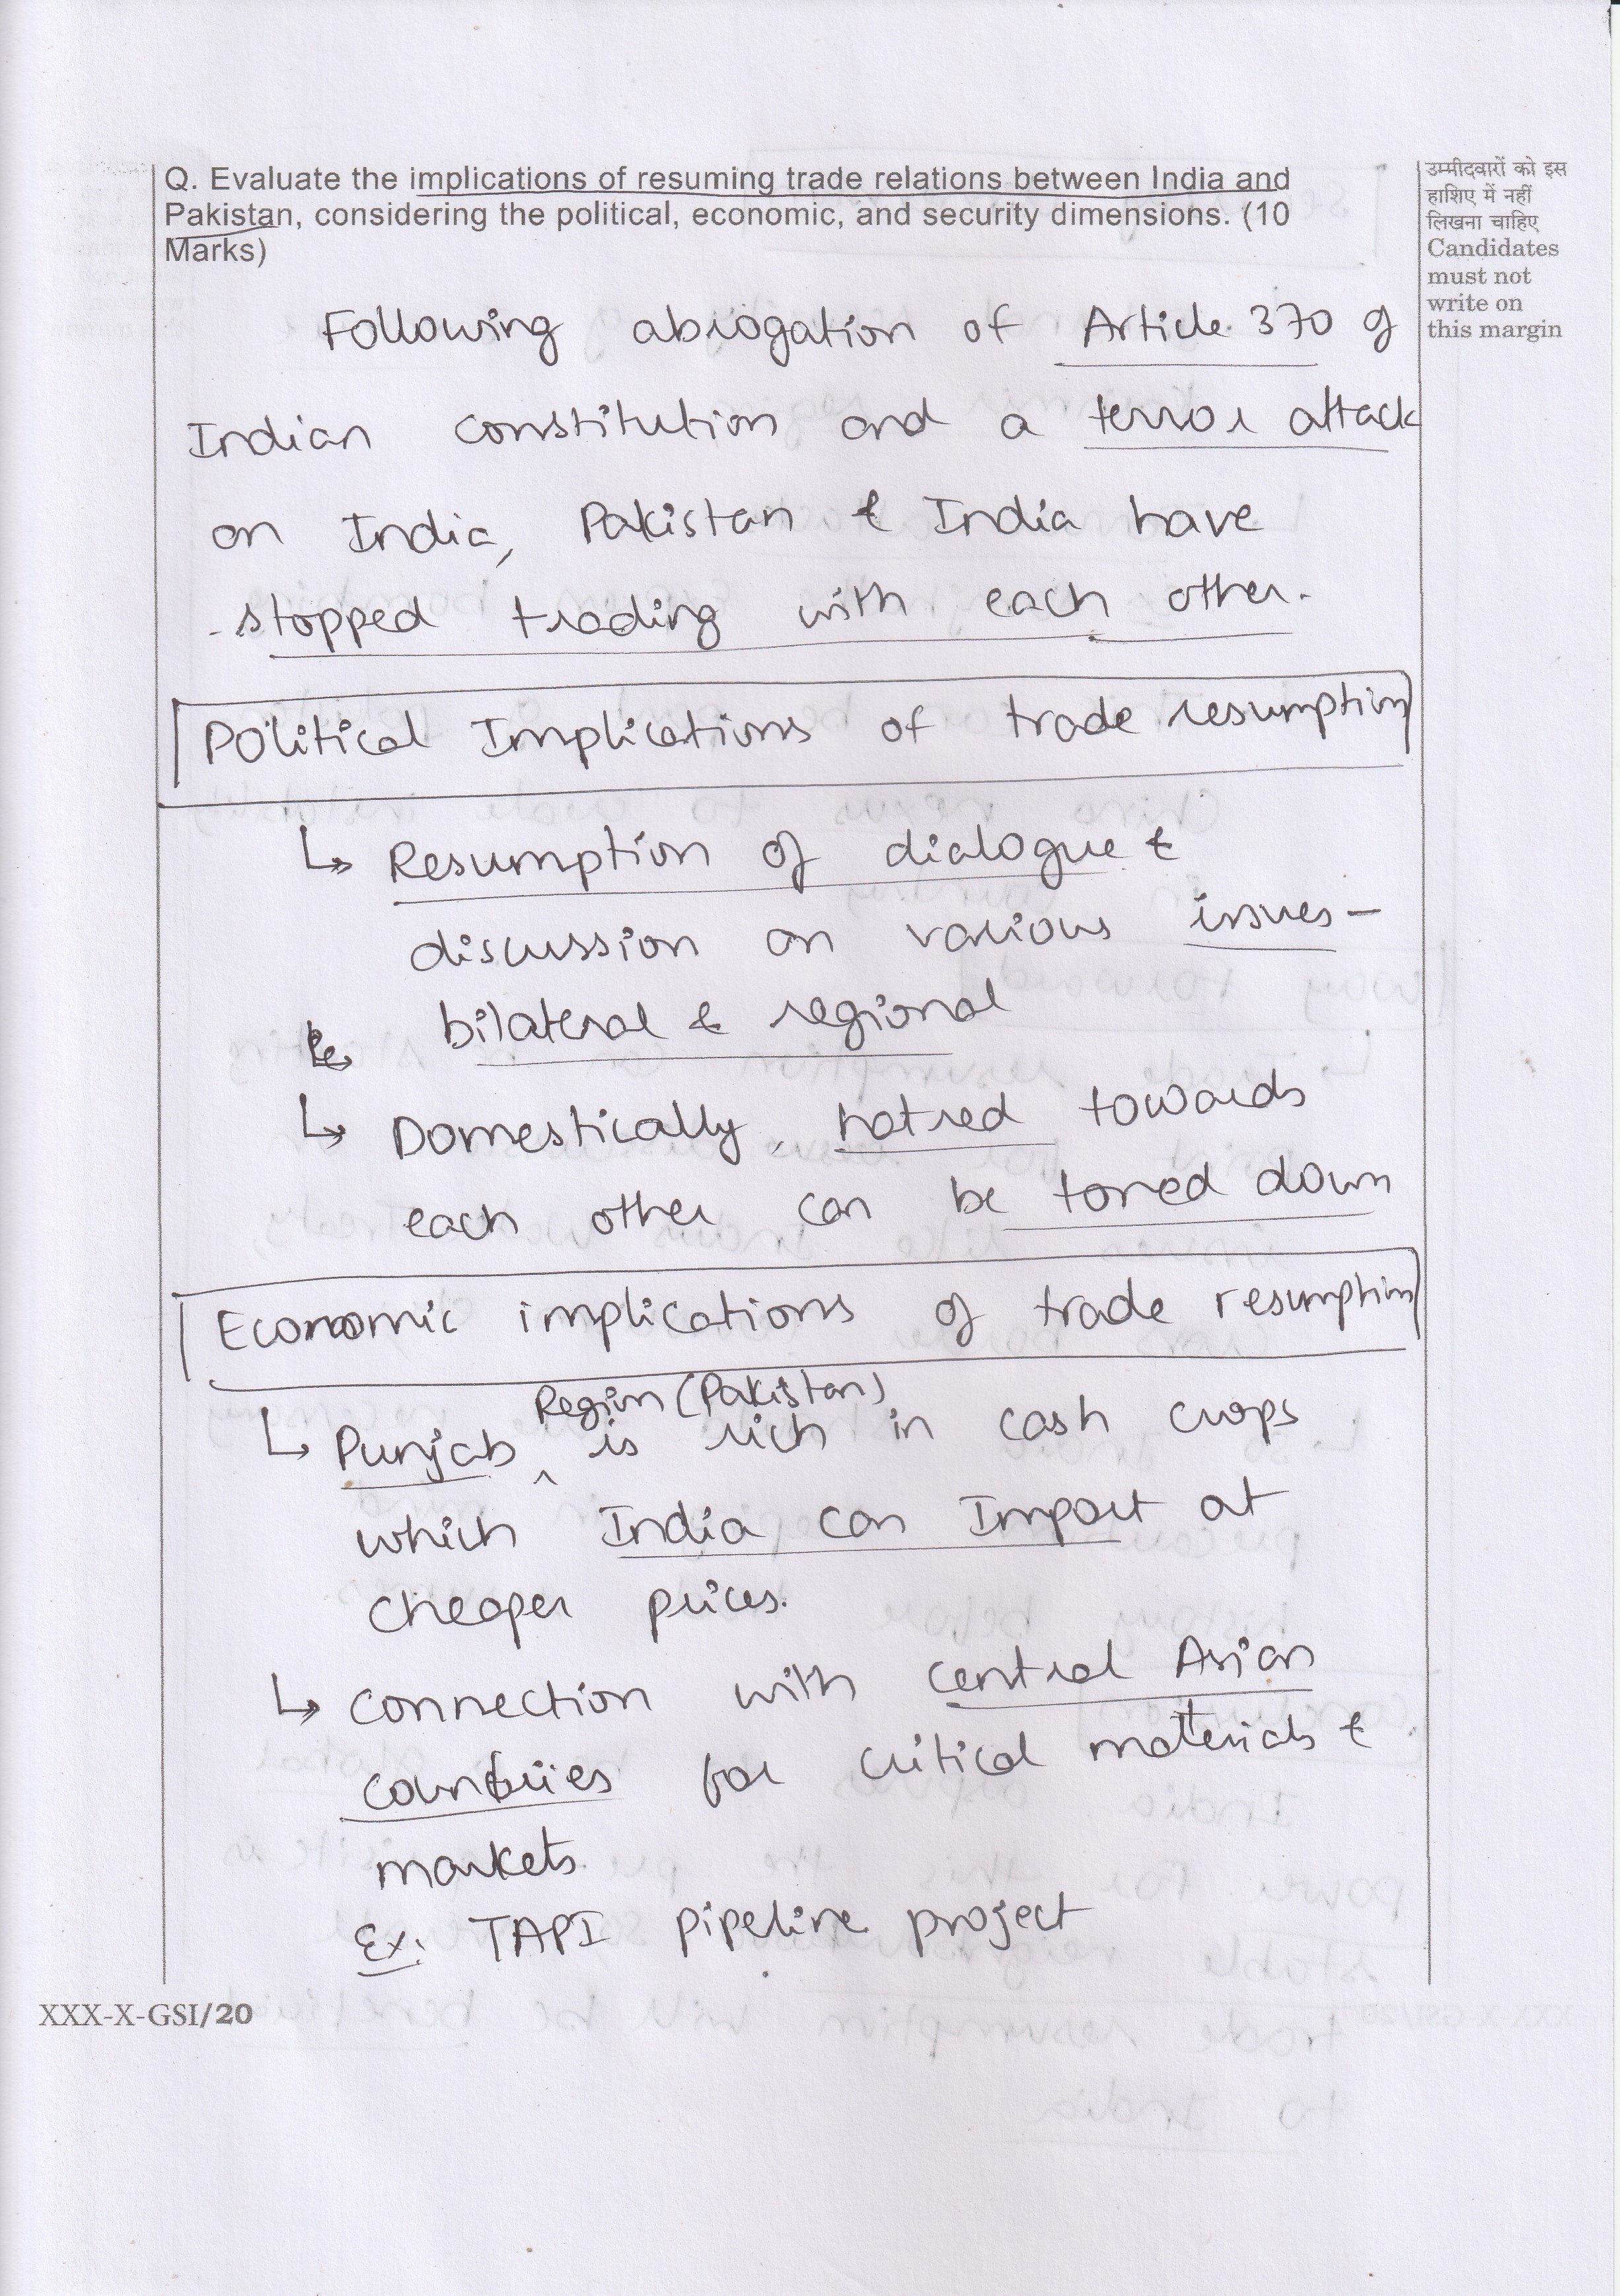 Q. Evaluate the implications of resuming trade relations between India and
Pakistan, considering the political, economic, and security dimensions. (10
Marks)
उम्मीदवारों को इस
हाशिए में नहीं
लिखना चाहिए
Candidates
must not
write on
this margin
Following abrogation of Article 370 of
Indian constitution and a terror attack
on India, Pakistan & India have
stopped trading with each other.
Political Implications of trade resumption
↳ Resumption of dialogue &
discussion on various issues –
bilateral & regional
↳ Domestically, hatred towards
each other can be toned down
Economic implications of trade resumption
Region (Pakistan)
↳ Punjab ^ is rich in cash crops
which India can Import at
cheaper prices.
↳ Connection with central Asian
countries for critical materials &
markets.
Ex: TAPI pipeline project
XXX-X-GSI/20